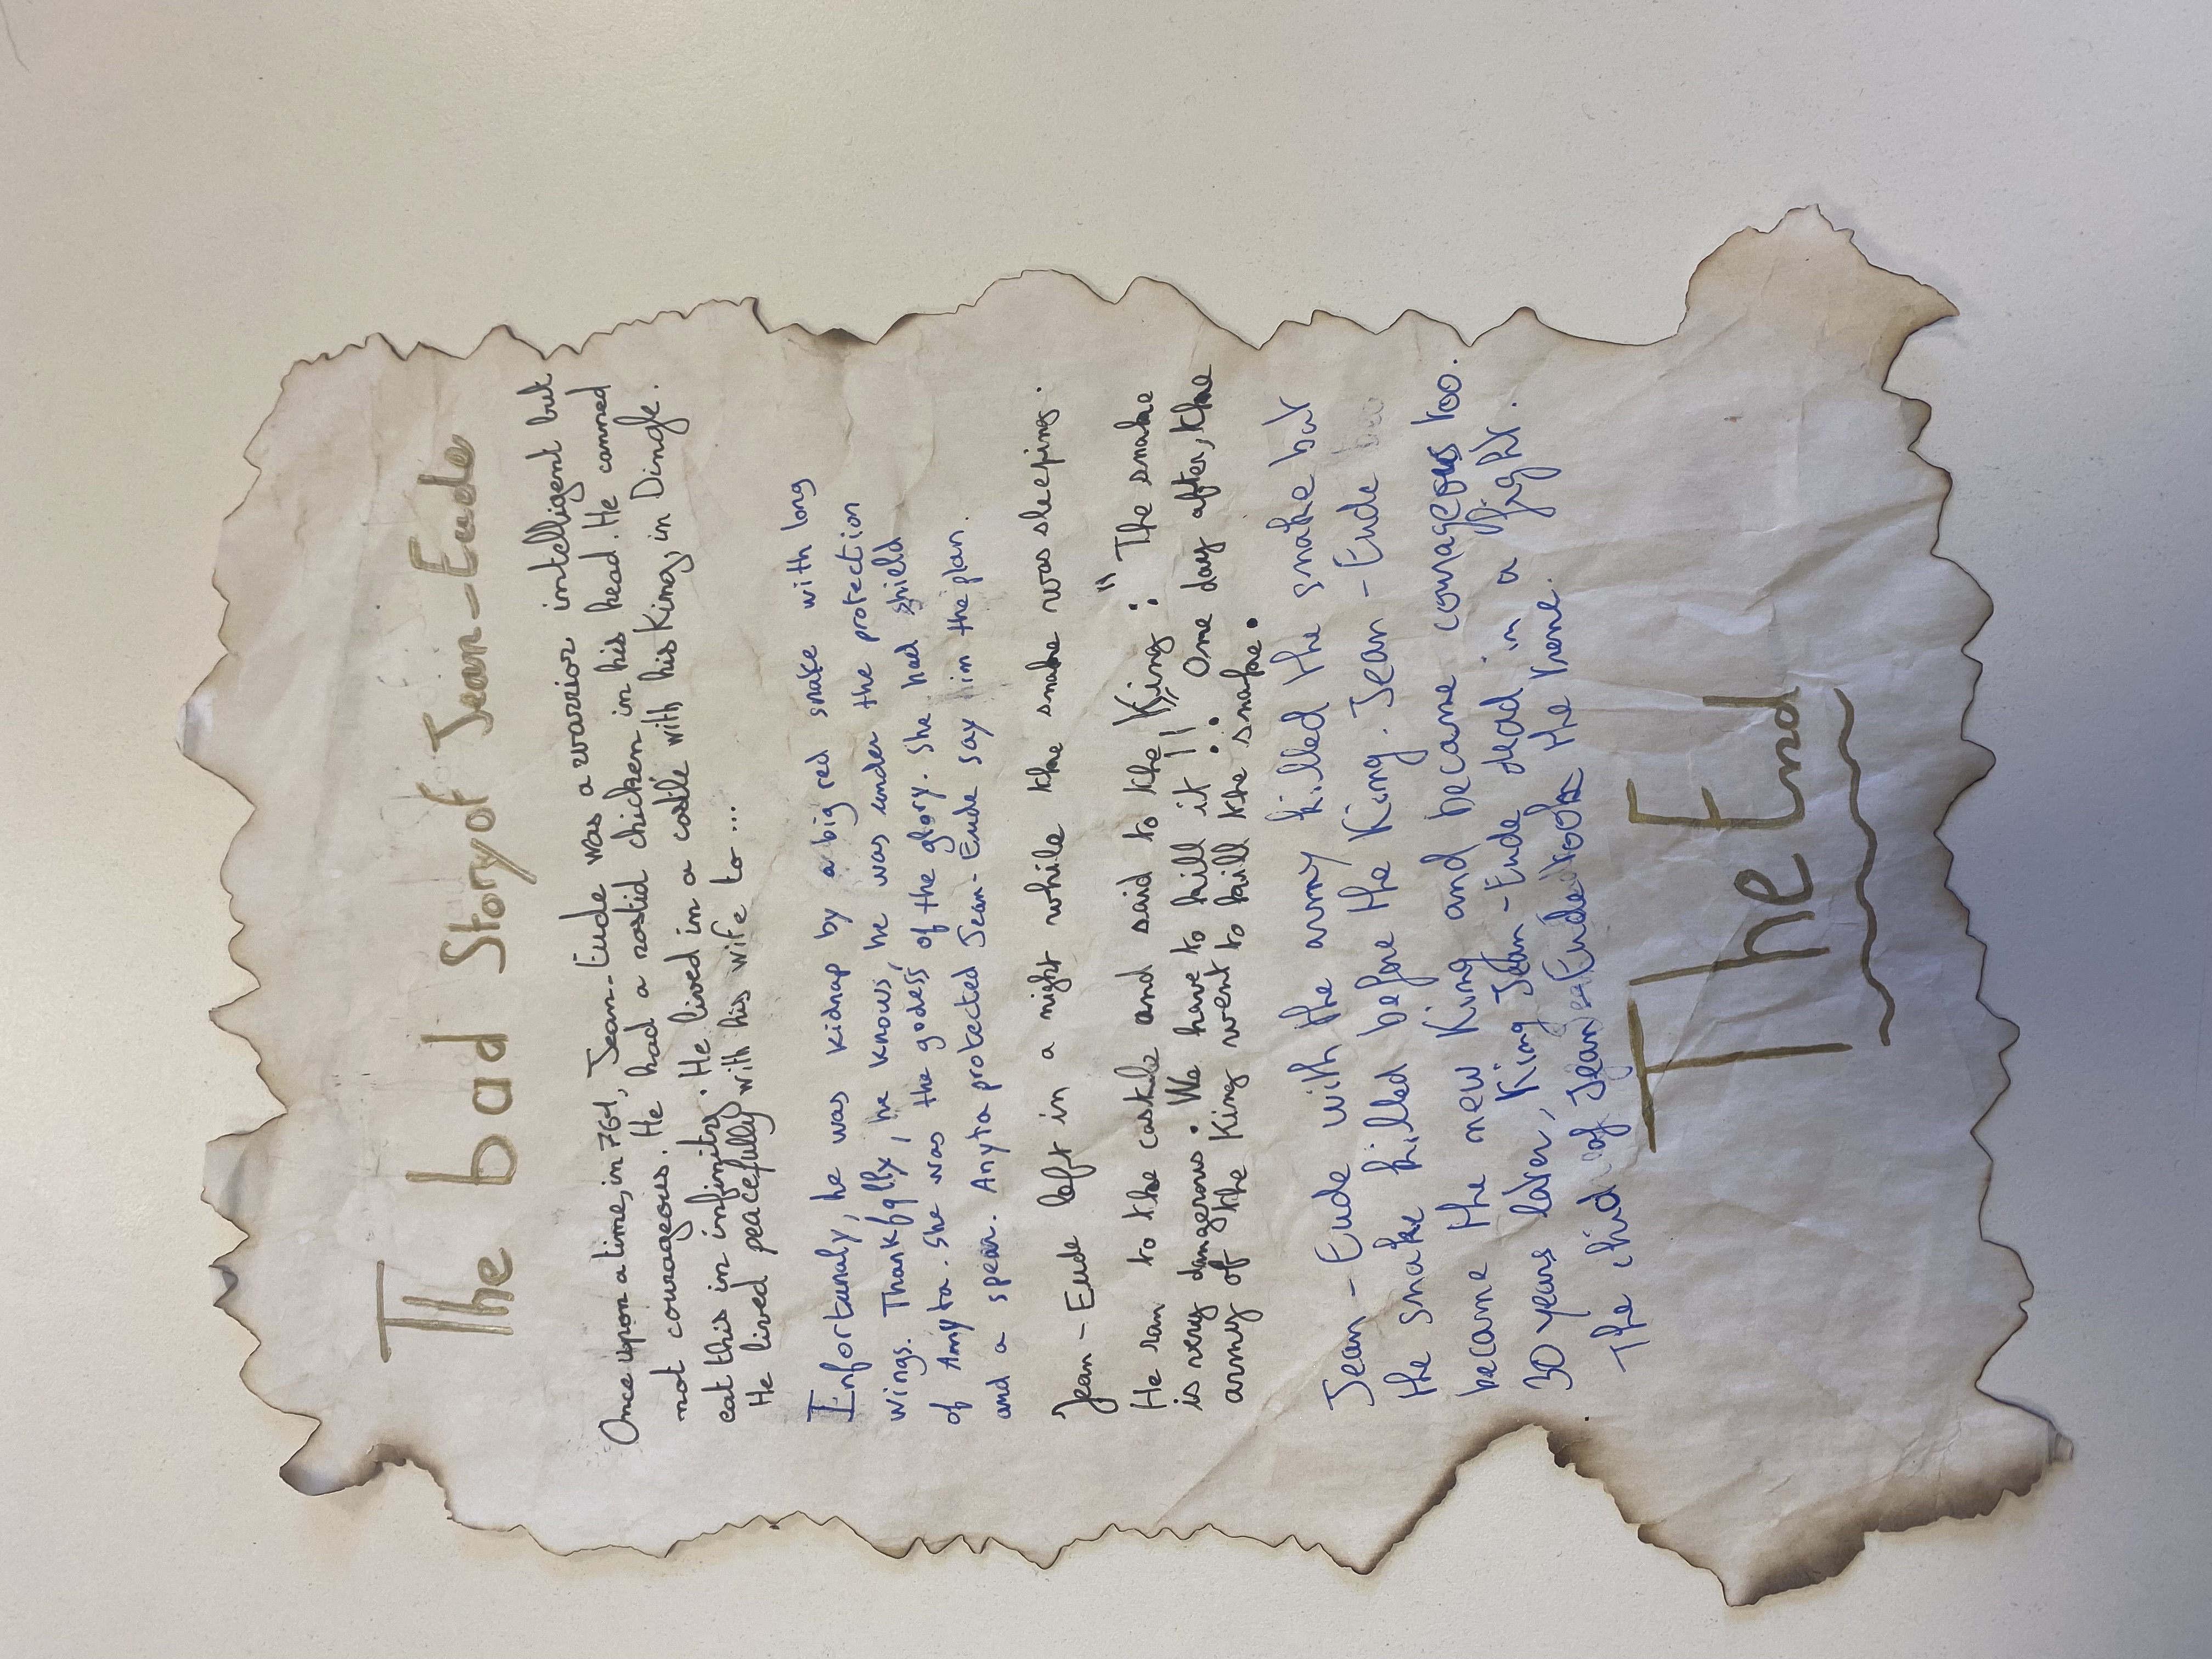 The bad Story of Jean-Eude
Once upon a time, in 761, Jean-Eude was a warrior intelligent but
not courageous. He had a rostid chicken in his head. He canned
eat this in infinity. He lived in a castle with his King, in Dingle.
He lived peacefully with his wife to ...
Infortunaly, he was kidnap by a big red snake with long
wings. Thankfully, he knows, he was under the protection
of Anyta. She was the godess of the glory. She had shield
and a spear. Anyta protected Jean-Eude say him the plan.
Jean-Eude left in a night while the snake was sleeping.
He ran to the castle and said to the King : " The snake
is very dangerous. We have to kill it !! One day after, the
army of the King went to kill the snake.
Jean-Eude with the army killed the snake but
the snake killed before the King. Jean-Eude
became the new King and became courageous too.
30 years later, King Jean-Eude dead in a fight.
The child of Jean Eude took the trene.
The End